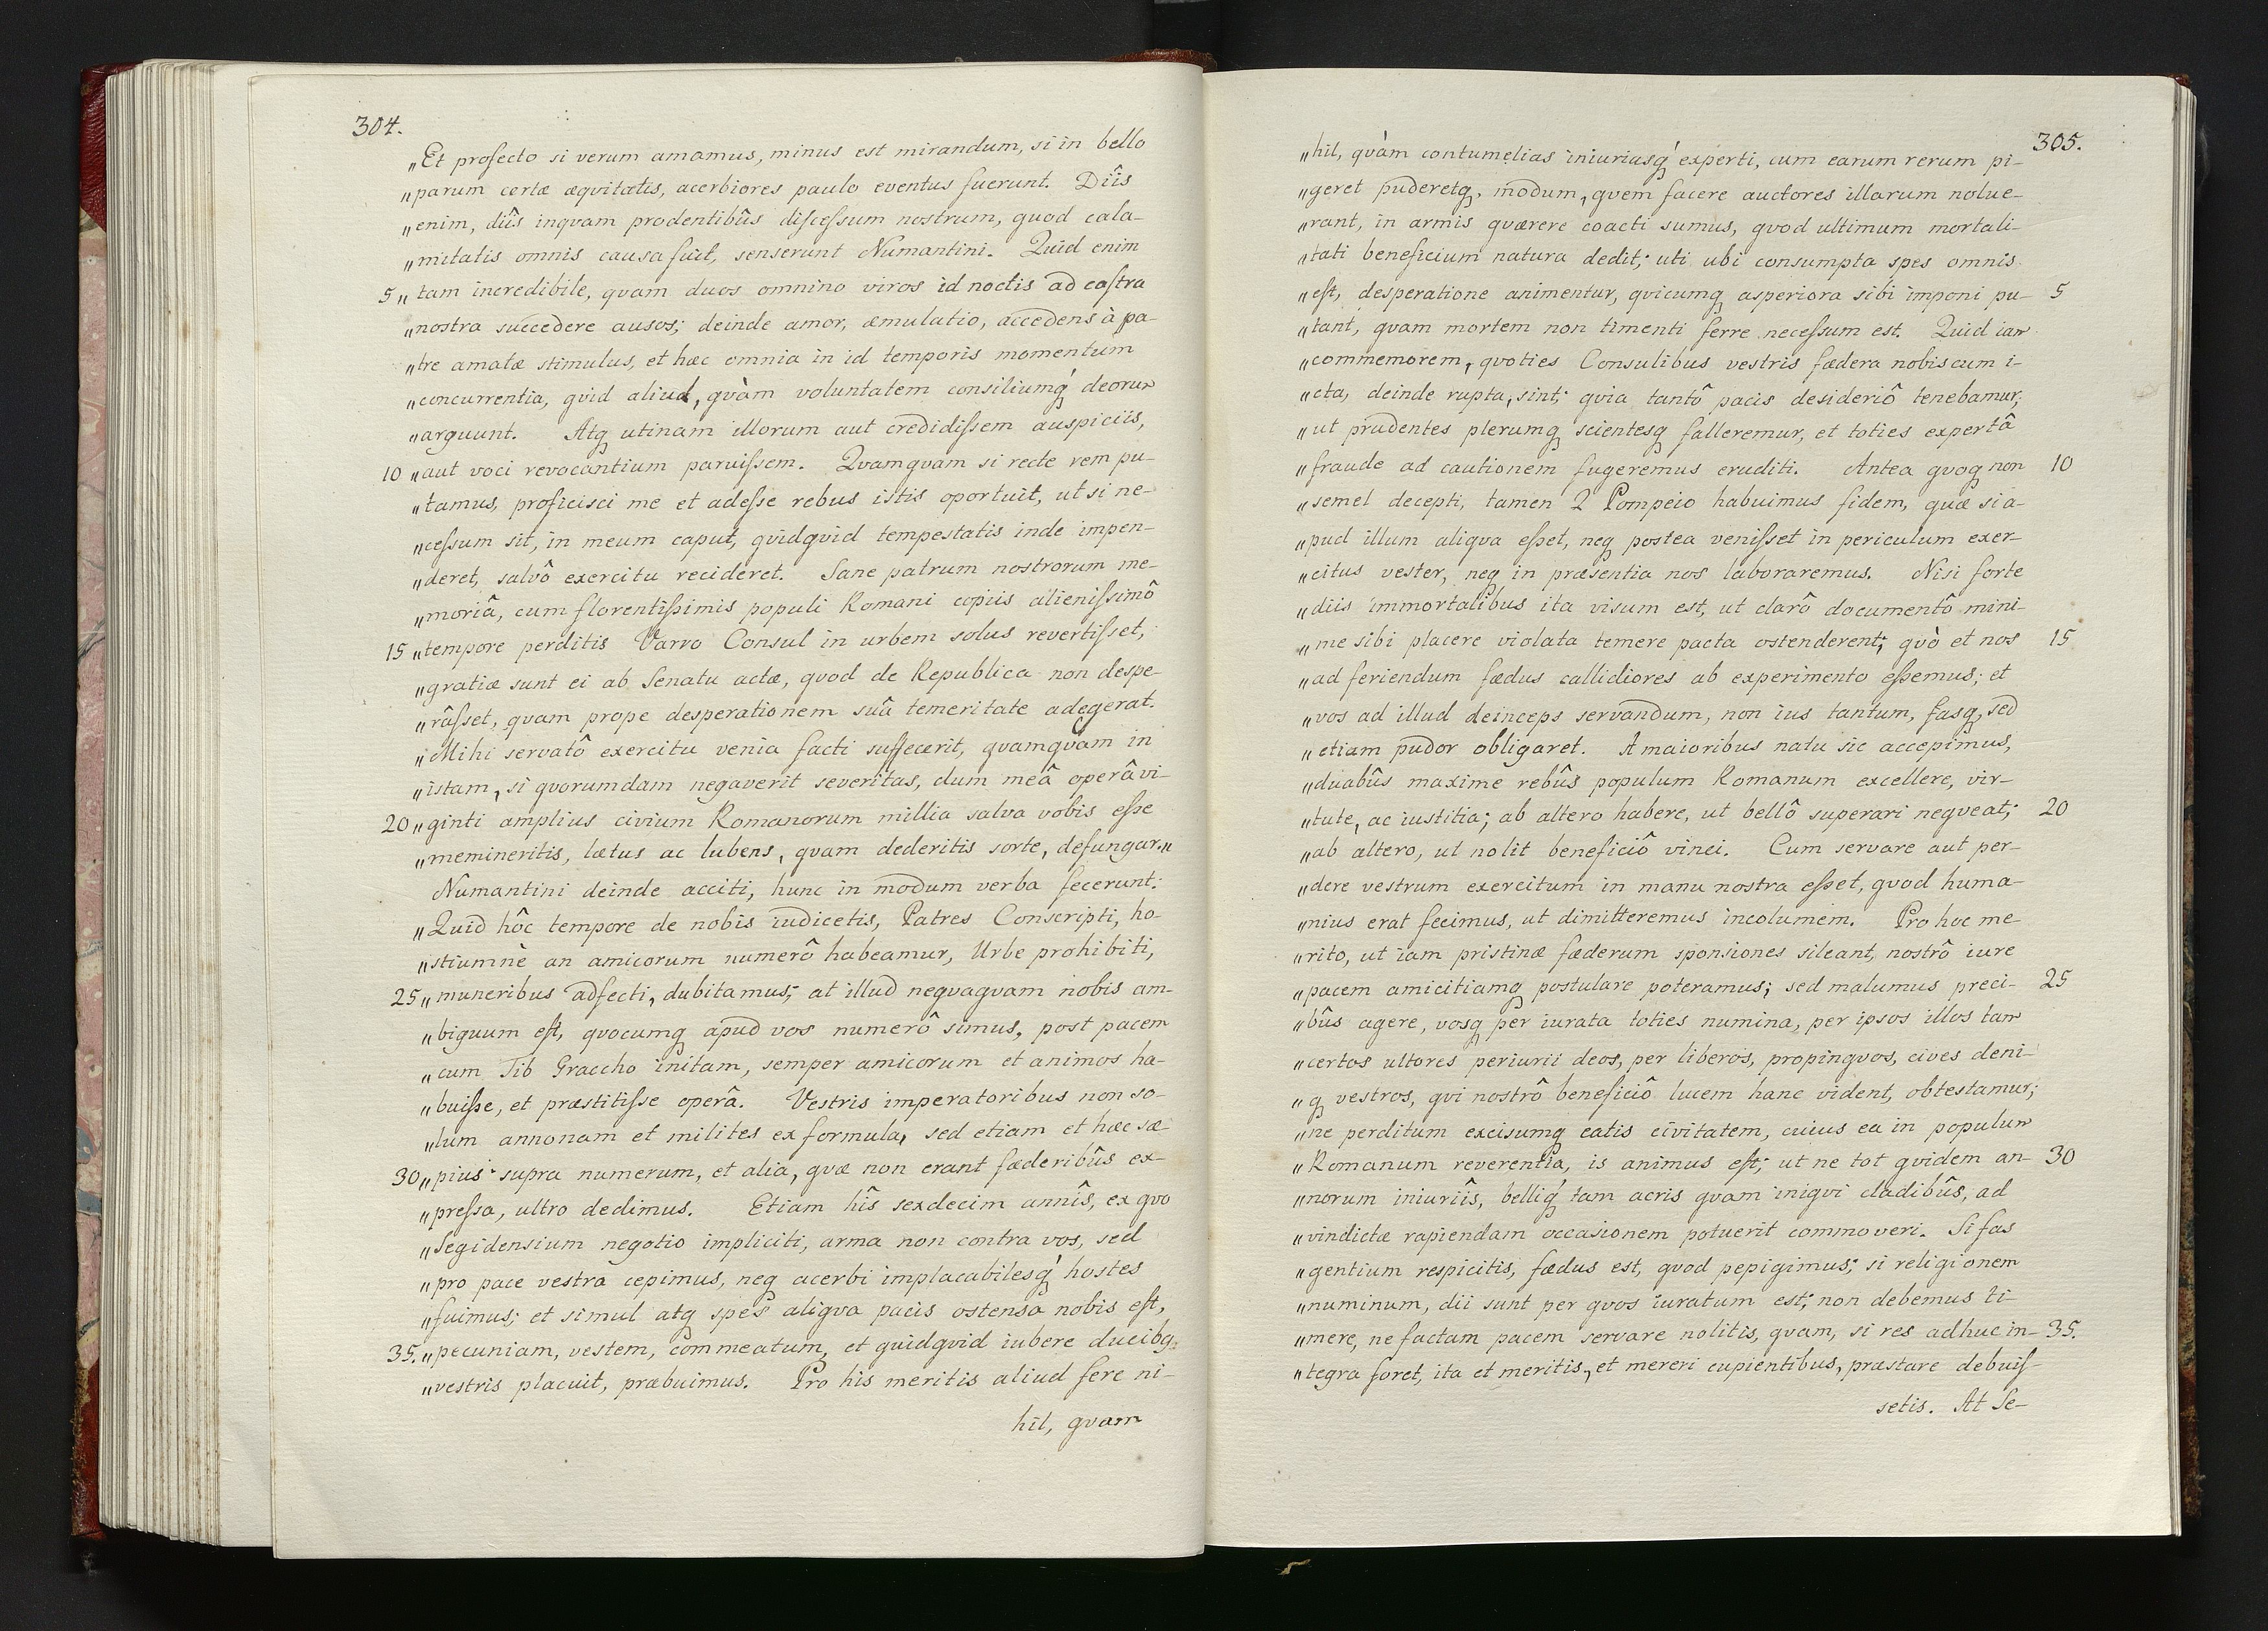 304.
„Et profecto si verum amamus, minus est mirandum, si in bello
„parum certæ æqvitatis, acerbiores paulo eventus fuerunt. Diîs
„enim, diîs inqvam prodentibûs discessum nostrum, quod cala-
„mitatis omnis causa fuit, senserunt Numantini. Quid enim
5„ tam incredibile, qvam duos omnino viros id noctis ad castra
„nostra succedere ausos; deinde amor, æmulatio, accedens à pa-
„tre amatæ stimulus, et hæc omnia in id temporis momentum
„concurrentia, qvid aliud, qvàm voluntatem consiliumq́ deorum
„arguunt. Atq utinam illorum aut credidissem auspiciis,
10 „aut voci revocantium paruissem. Qvamqvam si recte rem pu-
„tamus, proficisci me et adesse rebus istis oportuit, ut si ne-
„cessum sit, in meum caput, qvidqvid tempestatis inde impen-
„deret, salvô exercitu recideret. Sane patrum nostrorum me-
„moriâ, cum florentissimis populi Romani copiis alienissimô
15 „tempore perditis Varro Consul in urbem solus revertisset,
„gratiæ sunt ei ab Senatu actæ, qvod de Republica non despe-
„râsset, qvam prope desperationem suâ temeritate adegerat.
„Mihi servatô exercitu venia facti suffecerit, qvamqvam in
„istam, si qvorumdam negaverit severitas, dum meâ operâ vi-
20 „ginti amplius civium Romanorum millia salva vobis esse
„memineritis, lætus ac lubens, qvam dederitis sorte, defungar.„
Numantini deinde acciti, hunc in modum verba fecerunt:
„Quid hôc tempore de nobis iudicetis, Patres Conscripti, ho-
„stiumnè an amicorum numerô habeamur, Urbe prohibiti,
25 „muneribus adfecti, dubitamus; at illud neqvaqvam nobis am-
„biguum est, qvocumq apud vos numerô simus, post pacem
„cum Tib Graccho initam, semper amicorum et animos ha-
„buisse, et præstitisse operâ. Vestris imperatoribus non so-
„lum annonam et milites ex formula, sed etiam et hæc sæ-
30 „pius supra numerum, et alia, qvæ non erant fæderibûs ex-
„pressa, ultro dedimus. Etiam hîs sexdecim annîs, ex qvo
„Segidensium negotio impliciti, arma non contra vos, sed
„pro pace vestra cepimus, neq acerbi implacabilesq́ hostes
„fuimus; et simul atq spes aliqva pacis ostensa nobis est,
35. „pecuniam, vestem, commeatum, et quidqvid iubere ducibq
„vestris placuit, præbuimus. Pro his meritis aliud fere ni-
hil, qvam
305.
„hil, qvàm contumelias iniuriasq́ experti, cum earum rerum pi-
„geret puderetq, modum, qvem facere auctores illarum nolue-
„rant, in armis qværere coacti sumus, qvod ultimum mortali-
„tati beneficium natura dedit; uti ubi consumpta spes omnis
„est, desperatione animentur, qvicumq asperiora sibi imponi pu- 5
„tant, qvam mortem non timenti ferre necessum est. Quid iam
„commemorem, qvoties Consulibus vestris fædera nobiscum i-
„cta, deinde rupta, sint; qvia tantô pacis desideriô tenebamur,
„ut prudentes plerumq scientesq falleremur, et toties expertâ
„fraude ad cautionem fugeremus eruditi. Antea qvoq non 10
„semel decepti, tamen Q Pompeio habuimus fidem, quæ si a-
„pud illum aliqva esset, neq postea venisset in periculum exer-
„citus vester, neq in præsentia nos laboraremus. Nisi forte
„diis immortalibus ita visum est, ut clarô documentô mini-
„me sibi placere violata temere pacta ostenderent; qvò et nos 15
„ad feriendum fædus callidiores ab experimento essemus; et
„vos ad illud deinceps servandum, non ius tantum, fasq, sed
„etiam pudor obligaret. A maioribus natu sic accepimus,
„duabûs maxime rebûs populum Romanum excellere, vir-
„tute, ac iustitia; ab altero habere, ut bellô superari neqveat; 20
„ab altero, ut nolit beneficiô vinci. Cum servare aut per-
„dere vestrum exercitum in manu nostra esset, qvod huma-
„nius erat fecimus, ut dimitteremus incolumem. Pro hoc me-
„rito, ut iam pristinæ fæderum sponsiones sileant, nostrô iure
„pacem amicitiamq postulare poteramus; sed malumus preci- 25
„bûs agere, vosq per iurata toties numina, per ipsos illos tam
„certos ultores periurii deos, per liberos, propinqvos, cives deni-
„q vestros, qvi nostrô beneficiô lucem hanc vident, obtestamur;
„ne perditum excisumq eatis civitatem, cuius ea in populum
„Romanum reverentia, is animus est; ut ne tot qvidem an- 30
„norum iniuriîs, belliq́ tam acris qvam iniqvi cladibûs, ad
„vindictæ rapiendam occasionem potuerit commoveri. Si fas
„gentium respicitis, fædus est, qvod pepigimus; si religionem
„numinum, dii sunt per qvos iuratum est; non debemus ti-
„mere, ne factam pacem servare nolitis, qvam, si res adhuc in- 35.
„tegra foret, ita et meritis, et mereri cupientibus, præstare debuis-
setis. At Se-